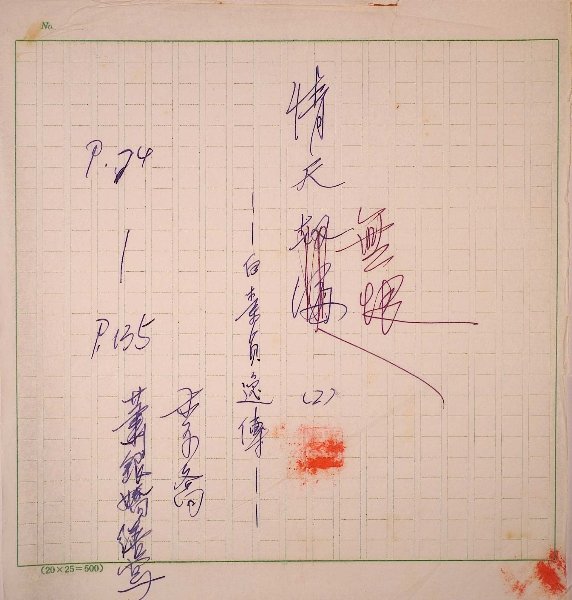 No.
無恨
情天
(2)
—白素貞逸傳—
李喬
P.74
|
P.135
蕭銀嬌繕寫
(20×25=500)